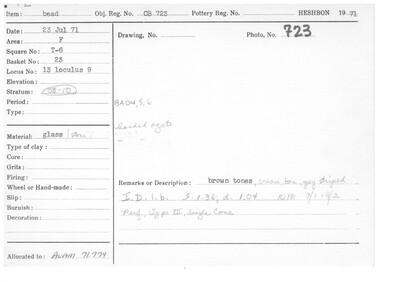 Item: bead Obj. Reg. No. OB 723 Pottery Reg. No. HESHBON 19 71
Date: 23 Jul 71
Area: F
Square No: T-6
Basket No: 23
Locus No: 13 loculus 9
Elevation:
Stratum:
Period:
Type:
Material: glass
Type of clay:
Core:
Grits:
Firing:
Wheel or Hand-made:
Slip:
Burnish:
Decoration:
Allocated to: AUAM 71.774
Drawing, No. Photo, No. 723
banded agate
Remarks or Description: brown tones, cream tan, gray striped
I.D. 1. b. l. 1.36; d. 1.04
Perf. type III, Single Cone